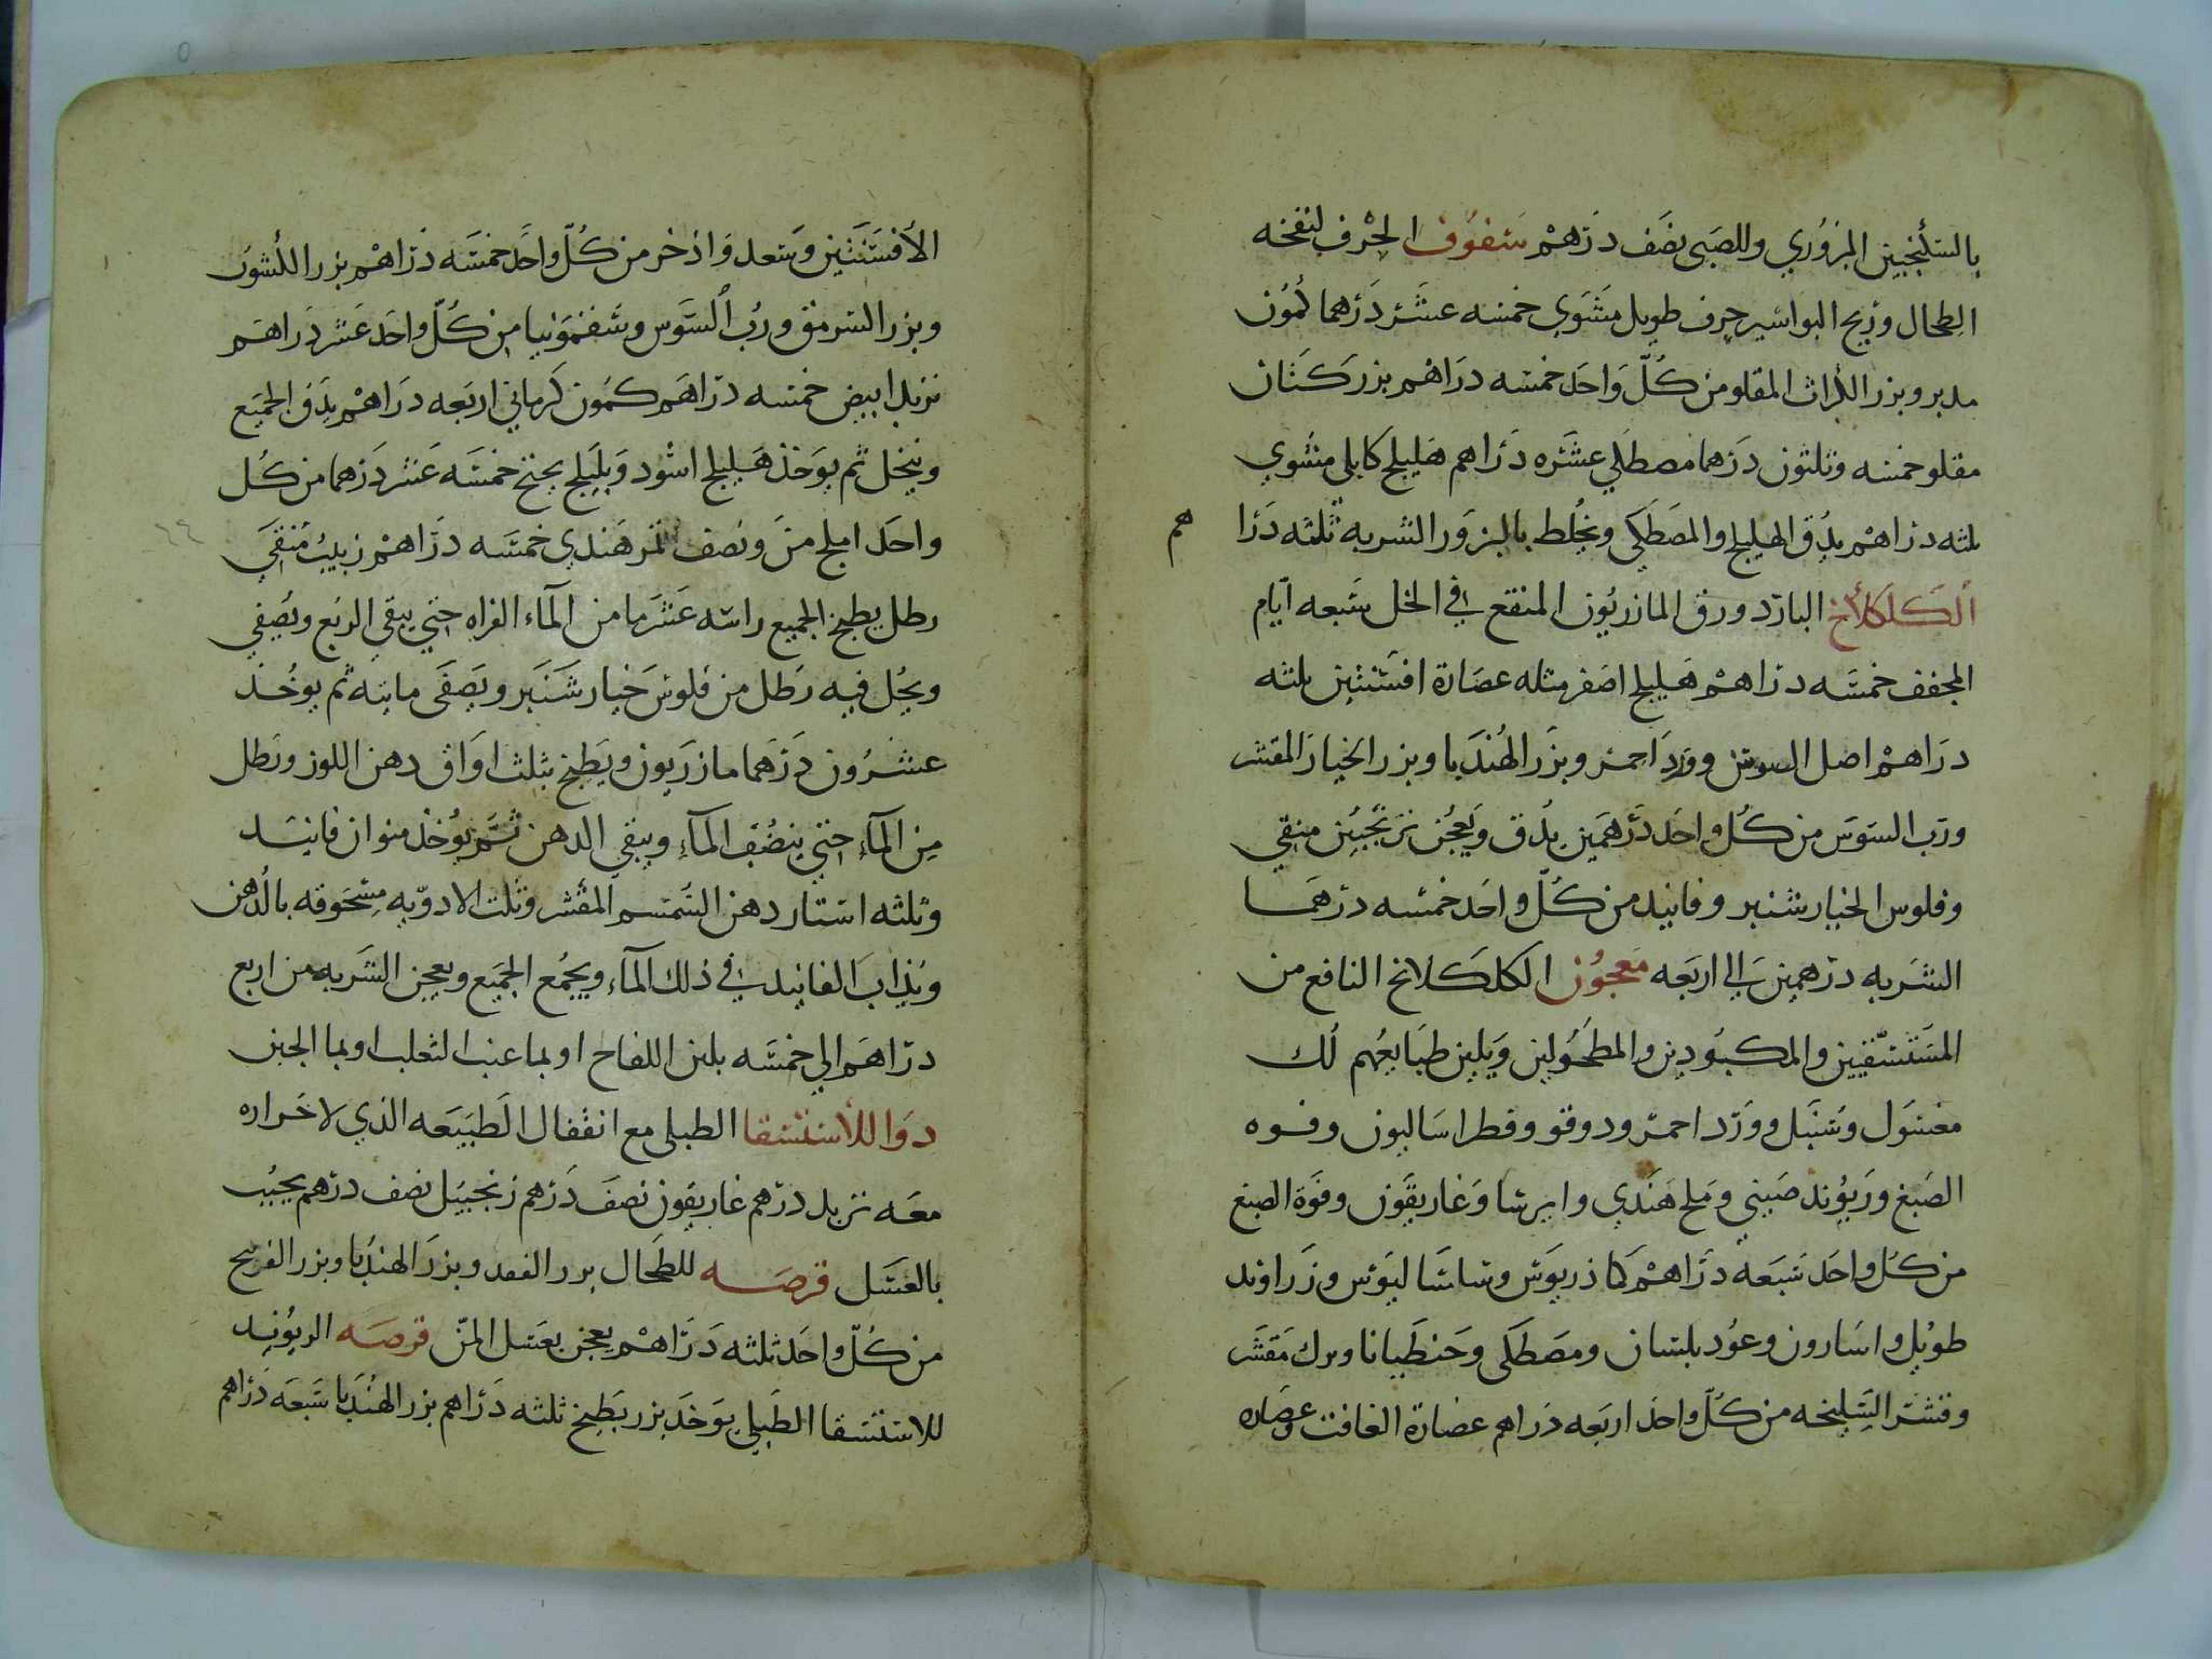 بالسكنجبين البزوري وللصبى نصف درهم سفوف الحرف لنفخه
الطحال وريح البواسير حرف طويل مشوي خمسه عشر درهما كمون
مدبر وبزر الكراث المقلو من كل واحد خمسه دراهم بزر كتان
مقلو خمسه وثلثون درهما مصطكي عشره دراهم هليلج كابلى مشوي
ثلثه دراهم يدق الهليلج والمصطكى ويخلط بالبزور الشربه ثلثه درا هم
الكلكلانج البارد ورق المازريون المنقع في الخل سبعه ايام
المجفف خمسه دراهم هليلج اصفر مثله عصارة افسنتين ثلثه
دراهم اصل السوس وورد احمر وبزر الهندبا وبزر الخيار المقشر
ورب السوس من كل واحد درهمين يدق ويعجن ترنجبين منقي
وفلوس الخيار شنبر وفانيد من كل واحد خمسه درهما
الشربه درهمين الى اربعه معجون الكلكلانج النافع من
المستسقيين والمكبودين والمطحولين ويلين طبايعهم لك
مغسول وسنبل وورد احمر ودوقو وفطراساليون وفوه
الصبغ وريوند صيني وملح هندي وايرسا وغاريقون وفوة الصبغ
من كل واحد سبعه دراهم كماذريوس وساساليوس وزراوند
طويل واسارون وعود بلسان ومصطكى وحنطيانا وبرك مقشر
وقشر السليخه من كل واحد اربعه دراهم عصارة الغافت وعصاره
الافسنتين وسعد واذخر من كل واحد خمسه دراهم بزر الكشوث
وبزر السرمق ورب السوس وسقمونيا من كل واحد عشر دراهم
تربد ابيض خمسه دراهم كمون كرماني اربعه دراهم يدق الجميع
وينخل ثم يوخذ هليلج اسود وبليلج يجنح خمسه عشر درهما من كل
واحد املج من ونصف تمر هندي خمسه دراهم زبيب منقى
رطل يطبخ الجميع راسه عشر ما من المآء القراه حتي يبقي الربع ويصفي
ويحل فيه رطل من فلوس خيار شنبر ويصفى مايته ثم يوخذ
عشرون درهما مازريون ويطبخ بثلث اواق دهن اللوز ورطل
من المآء حتي ينضف المآء ويبقي الدهن ثم يوخذ منوان فانيد
وثلثه استار دهن السمسم المقشر وتلت الادويه مسحوقه بالدهن
ويذاب الفانيد في ذلك المآء ويجمع الجميع ويعجن الشربه من اربع
دراهم الي خمسه بلبن اللقاح او بما عنب الثعلب او بما الجبن
دوا للاستسقا الطبلى مع انقفال الطبيعه الذي لا حراره
معه تربد درهم غاريقون نصف درهم زنجبيل نصف درهم يحبب
بالعسل قرصه للطحال بزر الفقد وبزر الهندبا وبزر الفرنج
من كل واحد ثلثه دراهم يعجن بعسل المن قرصه الريوند
للاستسقا الطبلي يوخذ بزر بطيخ ثلثه دراهم بزر الهندبا سبعه دراهم